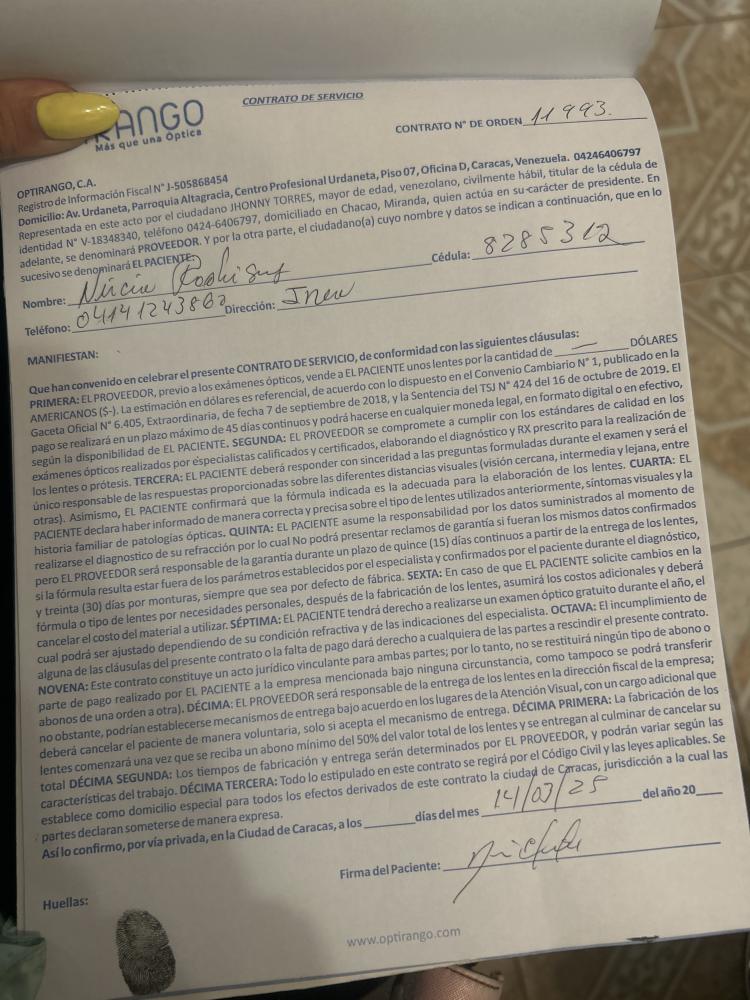 RANGO
Más que una Óptica
CONTRATO DE SERVICIO
CONTRATO N° DE ORDEN 11993.
OPTIRANGO, C.A.
Registro de Información Fiscal N° J-505868454
Domicilio: Av. Urdaneta, Parroquia Altagracia, Centro Profesional Urdaneta, Piso 07, Oficina D, Caracas, Venezuela. 04246406797
Representada en este acto por el ciudadano JHONNY TORRES, mayor de edad, venezolano, civilmente hábil, titular de la cédula de
identidad N° V-18348340, teléfono 0424-6406797, domiciliado en Chacao, Miranda, quien actúa en su carácter de presidente. En
adelante, se denominará PROVEEDOR. Y por la otra parte, el ciudadano(a) cuyo nombre y datos se indican a continuación, que en lo
sucesivo se denominará EL PACIENTE:
Nombre: Cédula: 8285312
Teléfono: 04141243860 Dirección:
MANIFIESTAN:
Que han convenido en celebrar el presente CONTRATO DE SERVICIO, de conformidad con las siguientes cláusulas:
PRIMERA: EL PROVEEDOR, previo a los exámenes ópticos, vende a EL PACIENTE unos lentes por la cantidad de — DÓLARES
AMERICANOS ($-). La estimación en dólares es referencial, de acuerdo con lo dispuesto en el Convenio Cambiario N° 1, publicado en la
Gaceta Oficial N° 6.405, Extraordinaria, de fecha 7 de septiembre de 2018, y la Sentencia del TSJ N° 424 del 16 de octubre de 2019. El
pago se realizará en un plazo máximo de 45 días continuos y podrá hacerse en cualquier moneda legal, en formato digital o en efectivo,
según la disponibilidad de EL PACIENTE. SEGUNDA: EL PROVEEDOR se compromete a cumplir con los estándares de calidad en los
exámenes ópticos realizados por especialistas calificados y certificados, elaborando el diagnóstico y RX prescrito para la realización de
los lentes o prótesis. TERCERA: EL PACIENTE deberá responder con sinceridad a las preguntas formuladas durante el examen y será el
único responsable de las respuestas proporcionadas sobre las diferentes distancias visuales (visión cercana, intermedia y lejana, entre
otras). Asimismo, EL PACIENTE confirmará que la fórmula indicada es la adecuada para la elaboración de los lentes. CUARTA: EL
PACIENTE declara haber informado de manera correcta y precisa sobre el tipo de lentes utilizados anteriormente, síntomas visuales y la
historia familiar de patologías ópticas. QUINTA: EL PACIENTE asume la responsabilidad por los datos suministrados al momento de
realizarse el diagnostico de su refracción por lo cual No podrá presentar reclamos de garantía si fueran los mismos datos confirmados
pero EL PROVEEDOR será responsable de la garantía durante un plazo de quince (15) días continuos a partir de la entrega de los lentes,
si la fórmula resulta estar fuera de los parámetros establecidos por el especialista y confirmados por el paciente durante el diagnóstico,
y treinta (30) días por monturas, siempre que sea por defecto de fábrica. SEXTA: En caso de que EL PACIENTE solicite cambios en la
fórmula o tipo de lentes por necesidades personales, después de la fabricación de los lentes, asumirá los costos adicionales y deberá
cancelar el costo del material a utilizar. SÉPTIMA: EL PACIENTE tendrá derecho a realizarse un examen óptico gratuito durante el año, el
cual podrá ser ajustado dependiendo de su condición refractiva y de las indicaciones del especialista. OCTAVA: El incumplimiento de
alguna de las cláusulas del presente contrato o la falta de pago dará derecho a cualquiera de las partes a rescindir el presente contrato.
NOVENA: Este contrato constituye un acto jurídico vinculante para ambas partes; por lo tanto, no se restituirá ningún tipo de abono o
parte de pago realizado por EL PACIENTE a la empresa mencionada bajo ninguna circunstancia, como tampoco se podrá transferir
abonos de una orden a otra). DÉCIMA: EL PROVEEDOR será responsable de la entrega de los lentes en la dirección fiscal de la empresa;
no obstante, podrían establecerse mecanismos de entrega bajo acuerdo en los lugares de la Atención Visual, con un cargo adicional que
deberá cancelar el paciente de manera voluntaria, solo si acepta el mecanismo de entrega. DÉCIMA PRIMERA: La fabricación de los
lentes comenzará una vez que se reciba un abono mínimo del 50% del valor total de los lentes y se entregan al culminar de cancelar su
total DÉCIMA SEGUNDA: Los tiempos de fabricación y entrega serán determinados por EL PROVEEDOR, y podrán variar según las
características del trabajo. DÉCIMA TERCERA: Todo lo estipulado en este contrato se regirá por el Código Civil y las leyes aplicables. Se
establece como domicilio especial para todos los efectos derivados de este contrato la ciudad de Caracas, jurisdicción a la cual las
partes declaran someterse de manera expresa.
Así lo confirmo, por vía privada, en la Ciudad de Caracas, a los días del mes 14/03/25 del año 20
Firma del Paciente:
Huellas:
www.optirango.com